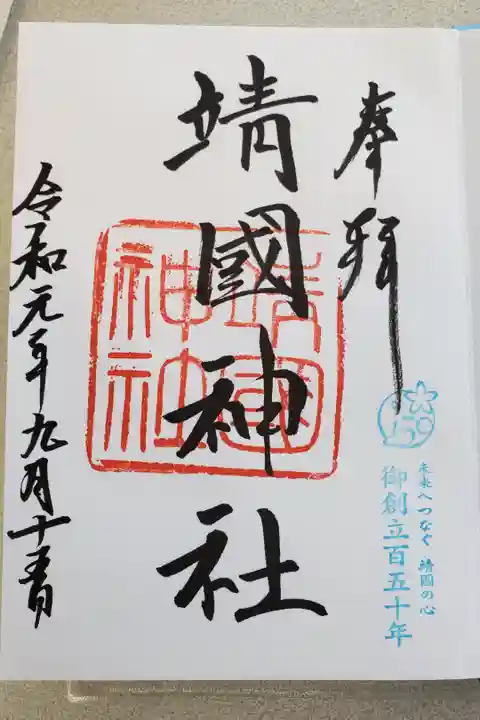 奉拝
150
未来へつなぐ 靖國の心
御創立百五十年
靖國神社
靖國神社
令和元年九月十五日